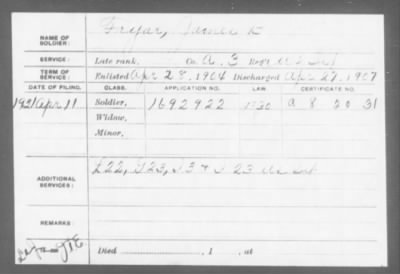 NAME OF SOLDIER: Fryar, James E
SERVICE: Late rank, Co. A. 3 Reg't
TERM OF SERVICE: Enlisted Apr 28, 1904 Discharged Apr 27, 1907
DATE OF FILING. CLASS. APPLICATION NO. LAW. CERTIFICATE NO.
1921 Apr 11 Soldier, 1692922 A 8 20 31
Widow,
Minor,
ADDITIONAL SERVICES: L 22, G 23, I 3 + I 23
REMARKS:
Died , 1 , at